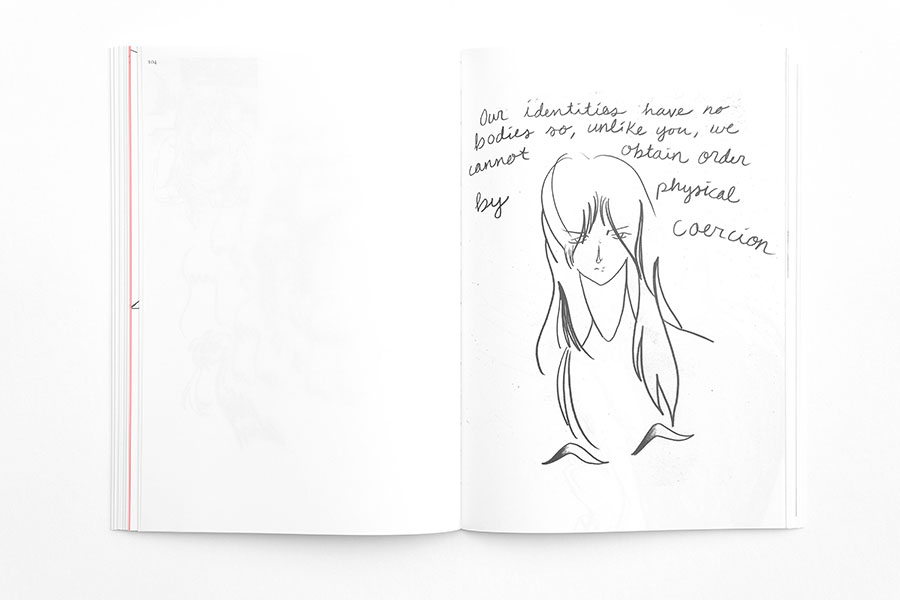 Our identities have no
bodies so, unlike you, we
cannot obtain order
by physical
coercion